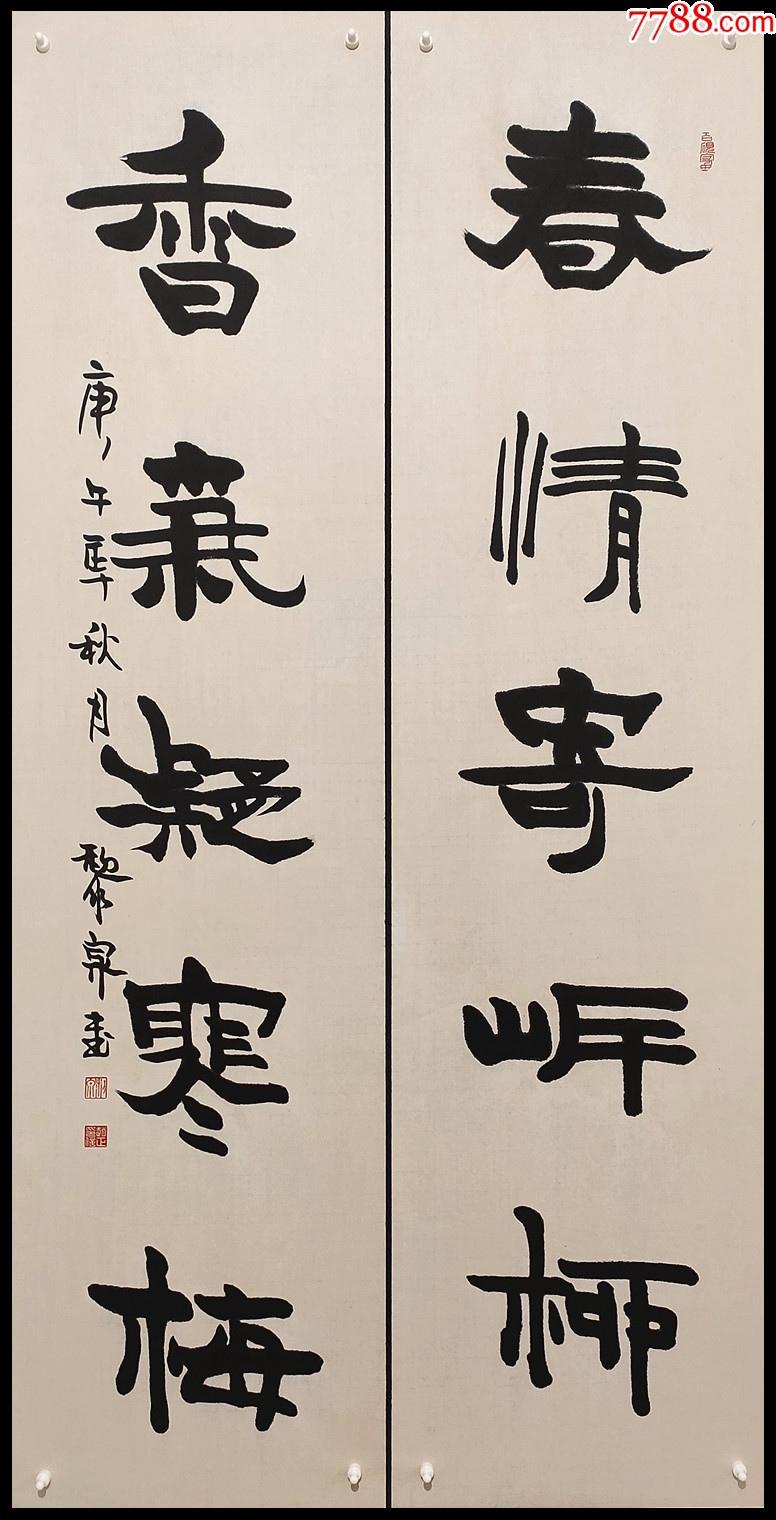 7788.com
春情寄岸柳
香凝寒梅
庚午年秋月 黎泉書